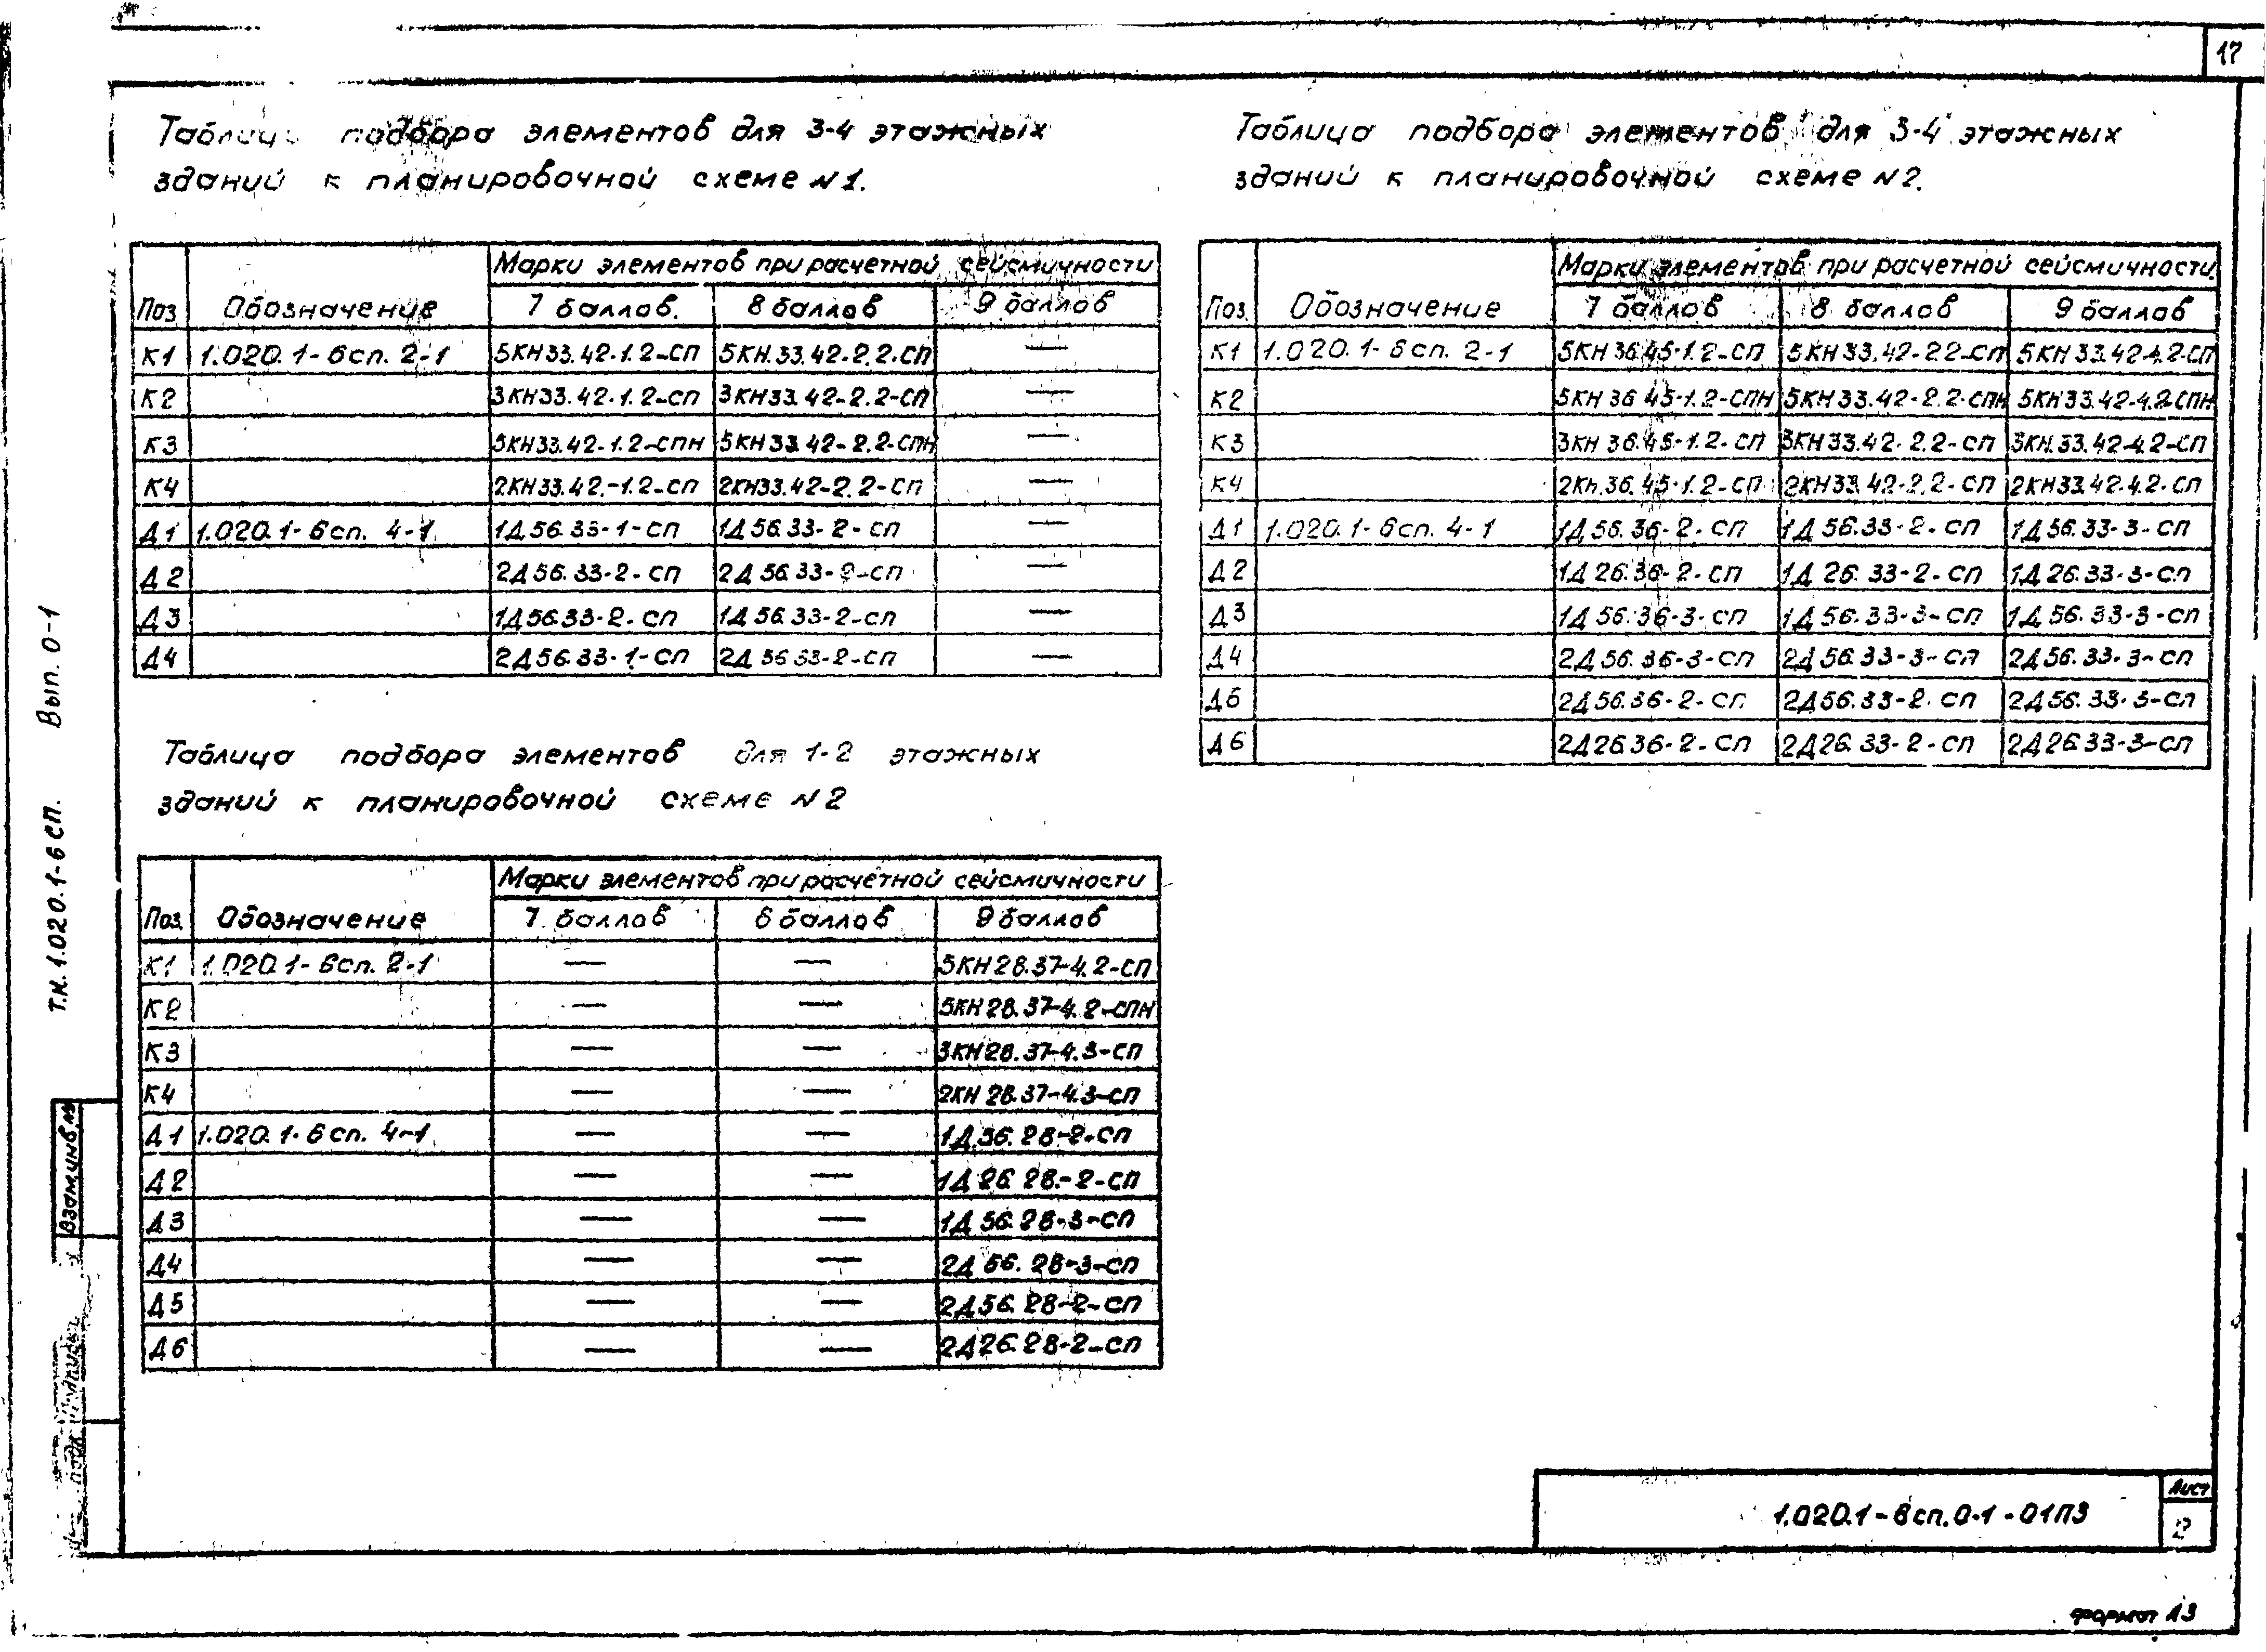 17
Таблица подбора элементов для 3-4 этажных
зданий к планировочной схеме N1.
Марки элементов при расчетной сейсмичности
Поз. Обозначение 7 баллов. 8 баллов 9 баллов
К1 1.020.1-6сп. 2-1 5КН33.42-1.2-СП 5КН.33.42-2.2-СП —
К2 3КН33.42-1.2-СП 3КН33.42-2.2-СП —
К3 5КН33.42-1.2-СПН 5КН33.42-2.2-СПН —
К4 2КН33.42-1.2-СП 2КН33.42-2.2-СП —
Д1 1.020.1-6сп. 4-1 1Д56.33-1-СП 1Д56.33-2-СП —
Д2 2Д56.33-2-СП 2Д56.33-2-СП —
Д3 1Д56.33-2-СП 1Д56.33-2-СП —
Д4 2Д56.33-1-СП 2Д56.33-2-СП —
Таблица подбора элементов для 1-2 этажных
зданий к планировочной схеме N2
Марки элементов при расчетной сейсмичности
Поз. Обозначение 7 баллов 8 баллов 9 баллов
К1 1.020.1-6сп. 2-1 — — 5КН28.37-4.2-СП
К2 — — 5КН28.37-4.2-СПН
К3 — — 3КН28.37-4.3-СП
К4 — — 2КН28.37-4.3-СП
Д1 1.020.1-6сп. 4-1 — — 1Д56.28-2-СП
Д2 — — 1Д26.28-2-СП
Д3 — — 1Д56.28-3-СП
Д4 — — 2Д56.28-3-СП
Д5 — — 2Д56.28-2-СП
Д6 — — 2Д26.28-2-СП
Таблица подбора элементов для 3-4 этажных
зданий к планировочной схеме N2.
Марки элементов при расчетной сейсмичности
Поз. Обозначение 7 баллов 8 баллов 9 баллов
К1 1.020.1-6сп. 2-1 5КН36.45-1.2-СП 5КН33.42-2.2-СП 5КН33.42-4.2-СП
К2 5КН36.45-1.2-СПН 5КН33.42-2.2-СПН 5КН33.42-4.2-СПН
К3 3КН36.45-1.2-СП 3КН33.42-2.2-СП 3КН.33.42-4.2-СП
К4 2КН.36.45-1.2-СП 2КН33.42-2.2-СП 2КН33.42-4.2-СП
Д1 1.020.1-6сп. 4-1 1Д56.36-2-СП 1Д56.33-2-СП 1Д56.33-3-СП
Д2 1Д26.36-2-СП 1Д26.33-2-СП 1Д26.33-3-СП
Д3 1Д56.36-3-СП 1Д56.33-3-СП 1Д56.33-3-СП
Д4 2Д56.36-3-СП 2Д56.33-3-СП 2Д56.33-3-СП
Д5 2Д56.36-2-СП 2Д56.33-2-СП 2Д56.33-3-СП
Д6 2Д26.36-2-СП 2Д26.33-2-СП 2Д26.33-3-СП
Т.К. 1.020.1-6СП. Вып. 0-1
Взам.инв.№
1.020.1-6сп.0-1-01ПЗ
Лист
2
формат А3